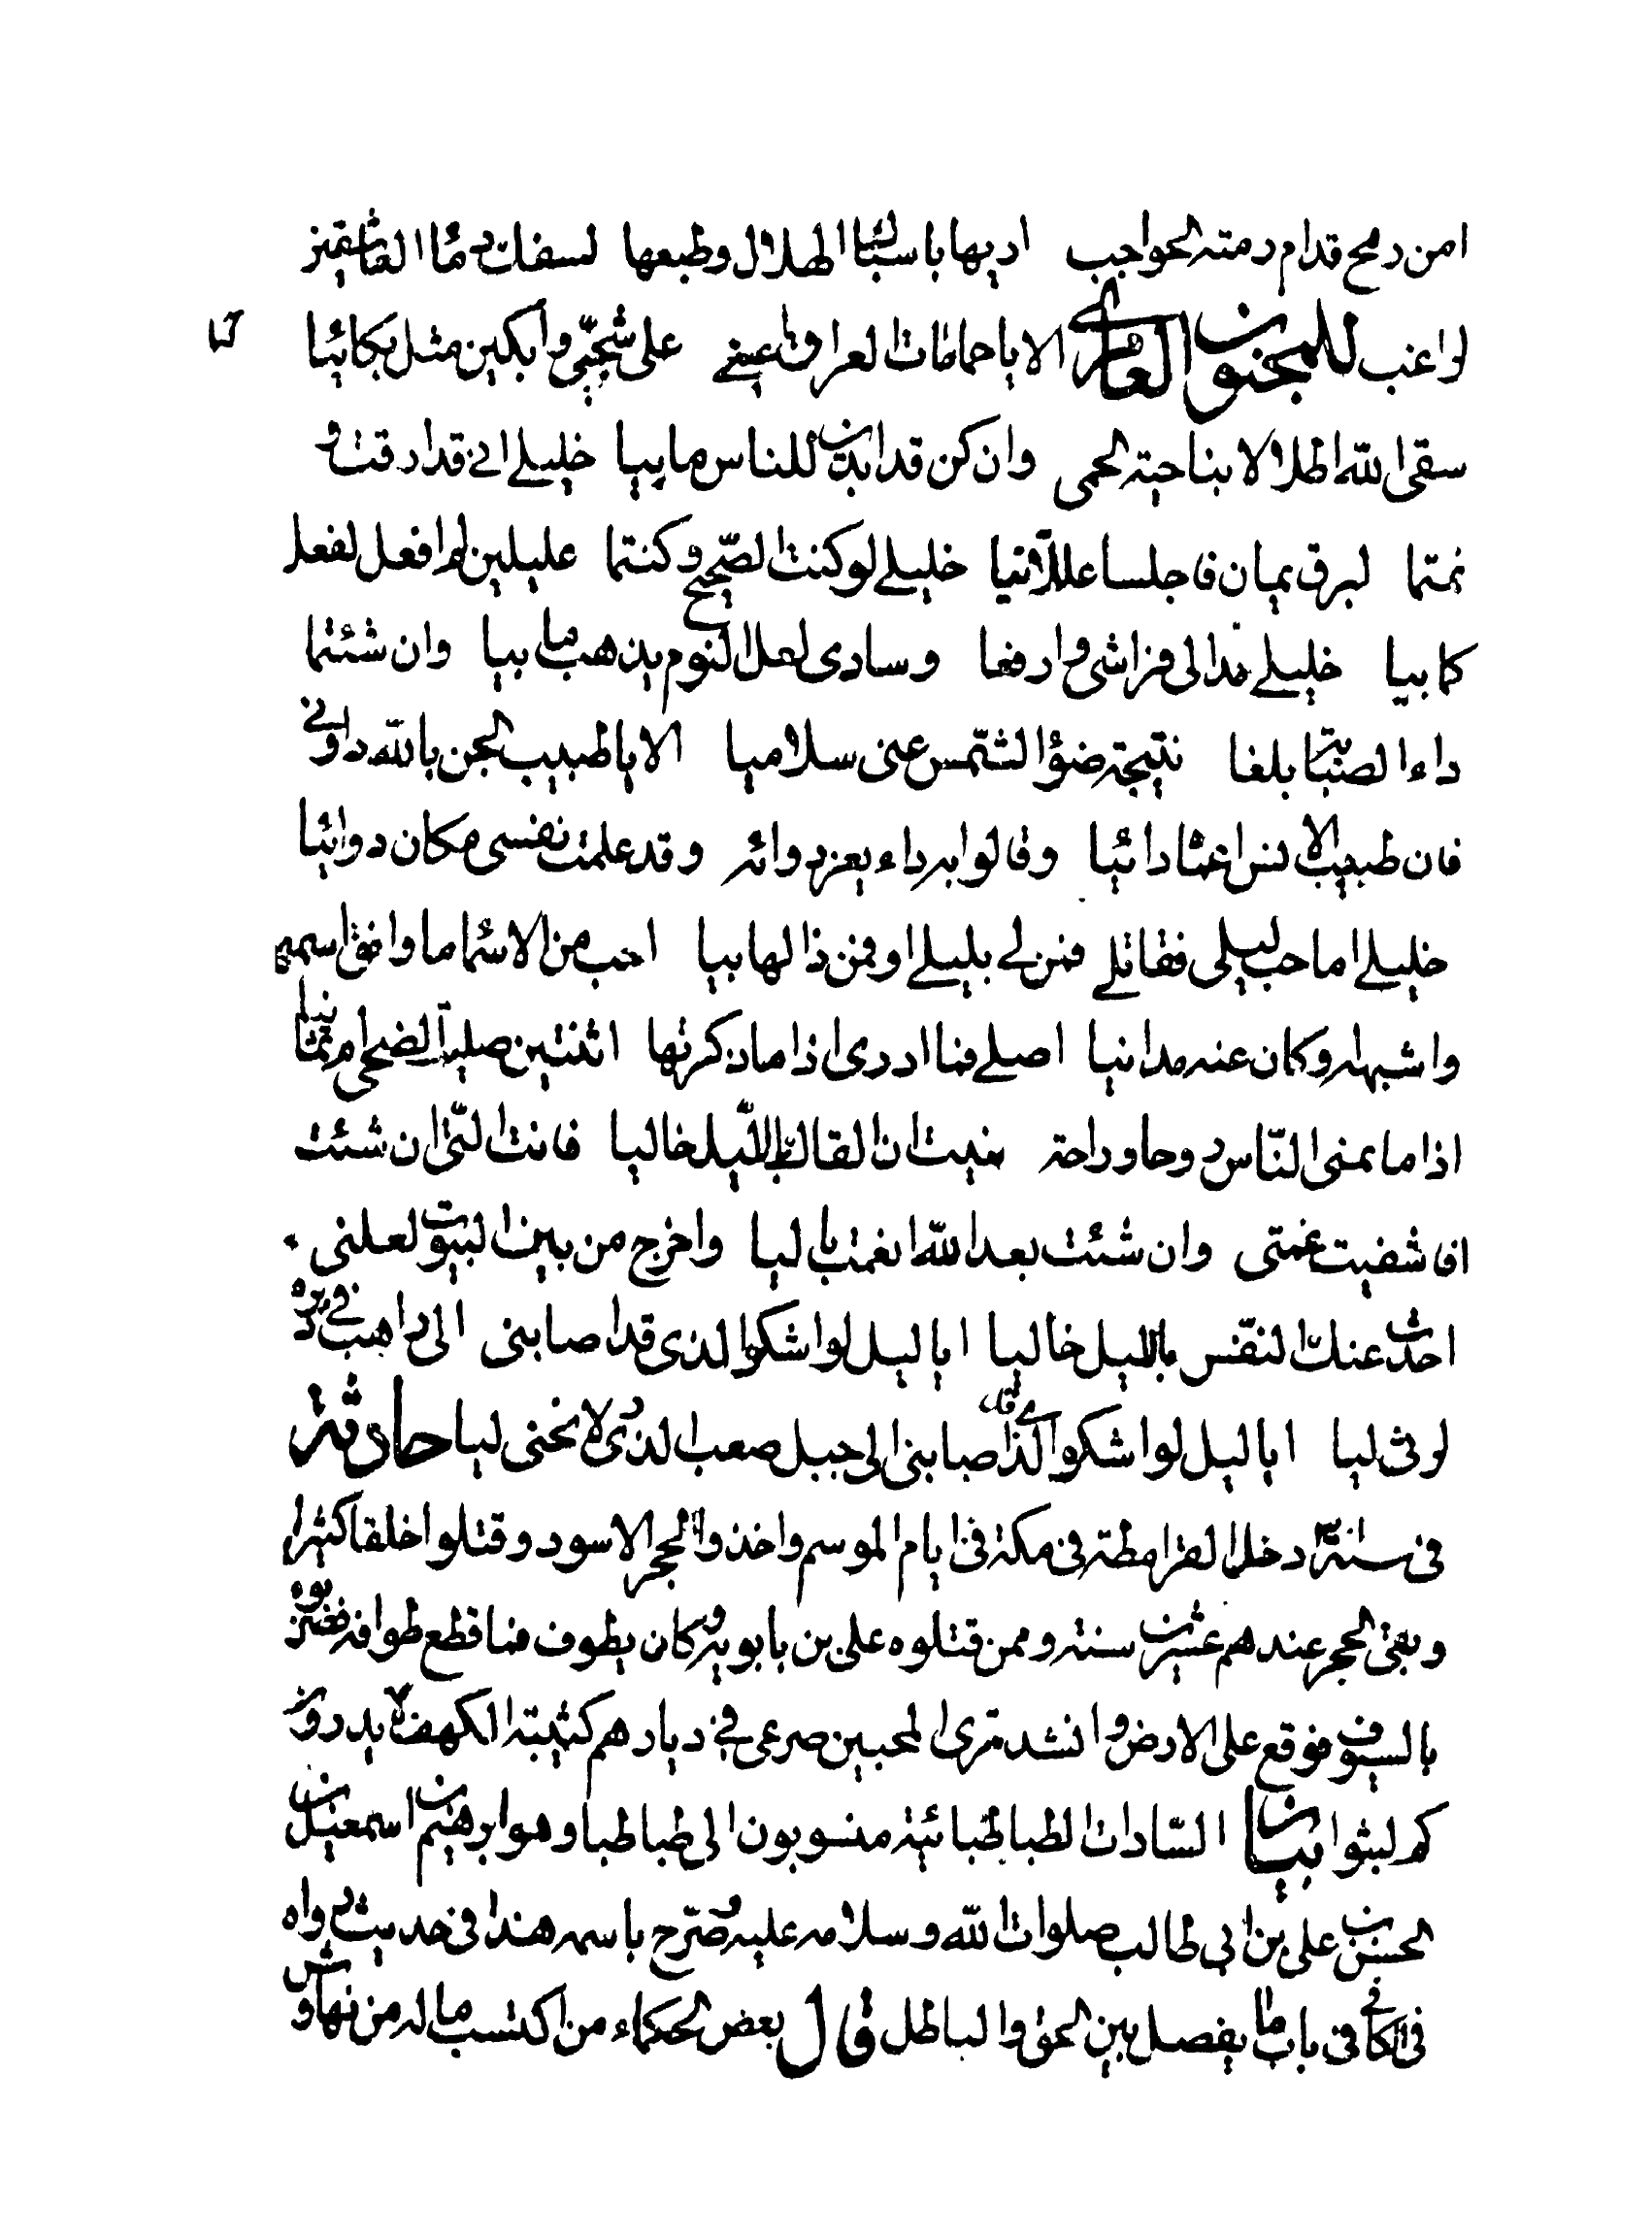 امن رمح قدام رمته الحواجب اديها باسنان الهلال وطبعها لسفك دماء العاشقين
لواعب للمجنون العامري الا يا حمامات العراق اعنني على شجني وابكين مثل بكائيا
سقى الله اطلالا بناحية الحمى وان كن قد ابدين للناس مابيا خليلي اني قد ارقت و
نمتما لبرق يمان فاجلسا عللانيا خليلي لو كنت الصحيح وكنتما عليلين لم افعل كفعل
كما بيا خليلي مدا لي فراشي وارفعا وسادي لعل النوم يذهب ما بيا وان شئتما
داء الصبابة بلغا نتيجة ضوء الشمس عني سلاميا الا يا طبيب الجن بالله داوني
فان طبيب الانس اعيا دائيا وقالوا به داء يعز دوائه وقد علمت نفسي مكان دوائيا
خليلي اما حب ليلى فقاتلي فمن لي بليلى او فمن ذا لها بيا احب من الاسماء ما وافق اسمه
واشبهه وكان عنه مدانيا اصلي فما ادري اذا ما ذكرتها اثنتين صليت الضحى ام ثمانيا
اذا ما تمنى الناس روحا وراحة تمنيت ان القاك بالليل خاليا فانت التي ان شئت
اشفيت غمتي وان شئت بعد الله انعمت باليا واخرج من بين البيوت لعلني
احدث عنك النفس بالليل خاليا ايا ليل لو اشكو الذي قد اصابني الى راهب في ديره
لرثى ليا ايا ليل لو اشكو الذي قد اصابني الى جبل صعب الذرى لانحنى ليا حادثة
في سنة ٣١٠ دخل القرامطة في مكة في ايام الموسم واخذوا الحجر الاسود وقتلوا خلقا كثيرا
وبقي الحجر عندهم عشرين سنة وممن قتلوه علي بن بابويه وكان يطوف فما قطع طوافه فضربوه
بالسيوف فوقع على الارض وانشد ترى المحبين صرعى في ديارهم كفتية الكهف لا يدرون
كم لبثوا بيان السادات الطباطبائية منسوبون الى طباطبا وهو ابرهيم بن اسمعيل بن
الحسن بن علي بن ابي طالب صلوات الله وسلامه عليه وصرح باسمه هذا في حديث رواه
في الكافي في باب ما يفصل بين الحق والباطل قال بعض الحكماء من اكتسب ماله من نهاوش